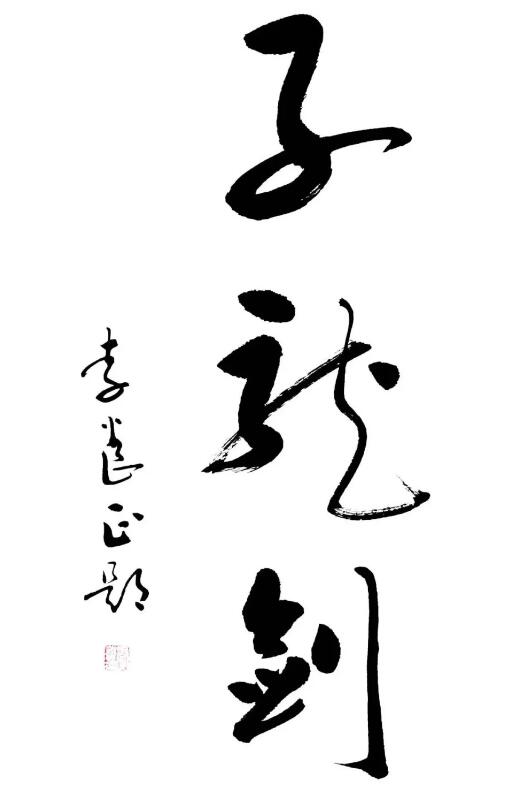 子龙剑
李养正题